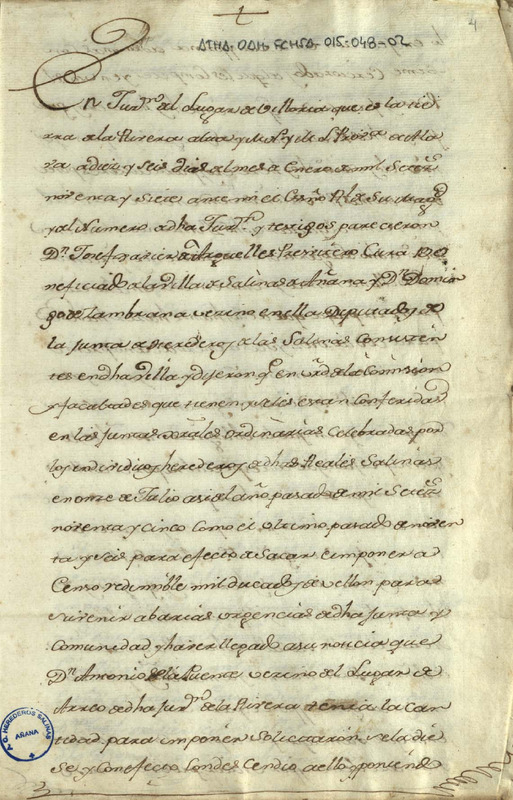 4
ATHA-DAH-FCHSA-015-048-02
En Jurn. del Lugar de Villoria que es la tie
rra de la Rivera alda y M.N y M. L. Prova. de Ala
va a diez y seis dias del mes de Enero de mil Setets.
noventa y Siete ante mi el Essno R.l de Su Magd.
y del Numero de dha Jurn. y testigos parecieron
Dn. Josef Xavier de Arguelles Presvitero Cura Be
neficiado de la Villa de Salinas de Añana y Dn. Domin
go de Zambrana vecino en ella Deputados de
la Junta de Herederos de las Salinas Consisten
tes en dha Villa y dijeron q. en vrd de la Comision
y facultades que tienen y les estan Conferidas
en las Juntas Grales ordinarias Celebradas por
los individuos herederos de dhas Reales Salinas
en onze de Julio asi del año pasado de mil Setets.
noventa y cinco como el ultimo pasado de noven
ta y seis para efecto de Sacar e imponer a
Censo redimible mil ducados de vellon para
suvenir a barias urgencias de dha Junta y
Comunidad y haver llegado a su noticia que
Dn. Antonio de la Puente vecino del Lugar de
Arreo de dha Jurn. de la Rivera tenia la Can
tidad para imponer Solicitaron se la die
se y Con efecto Condescendio a ello y poniend
A. G. HEREDEROS SALINAS
AÑANA